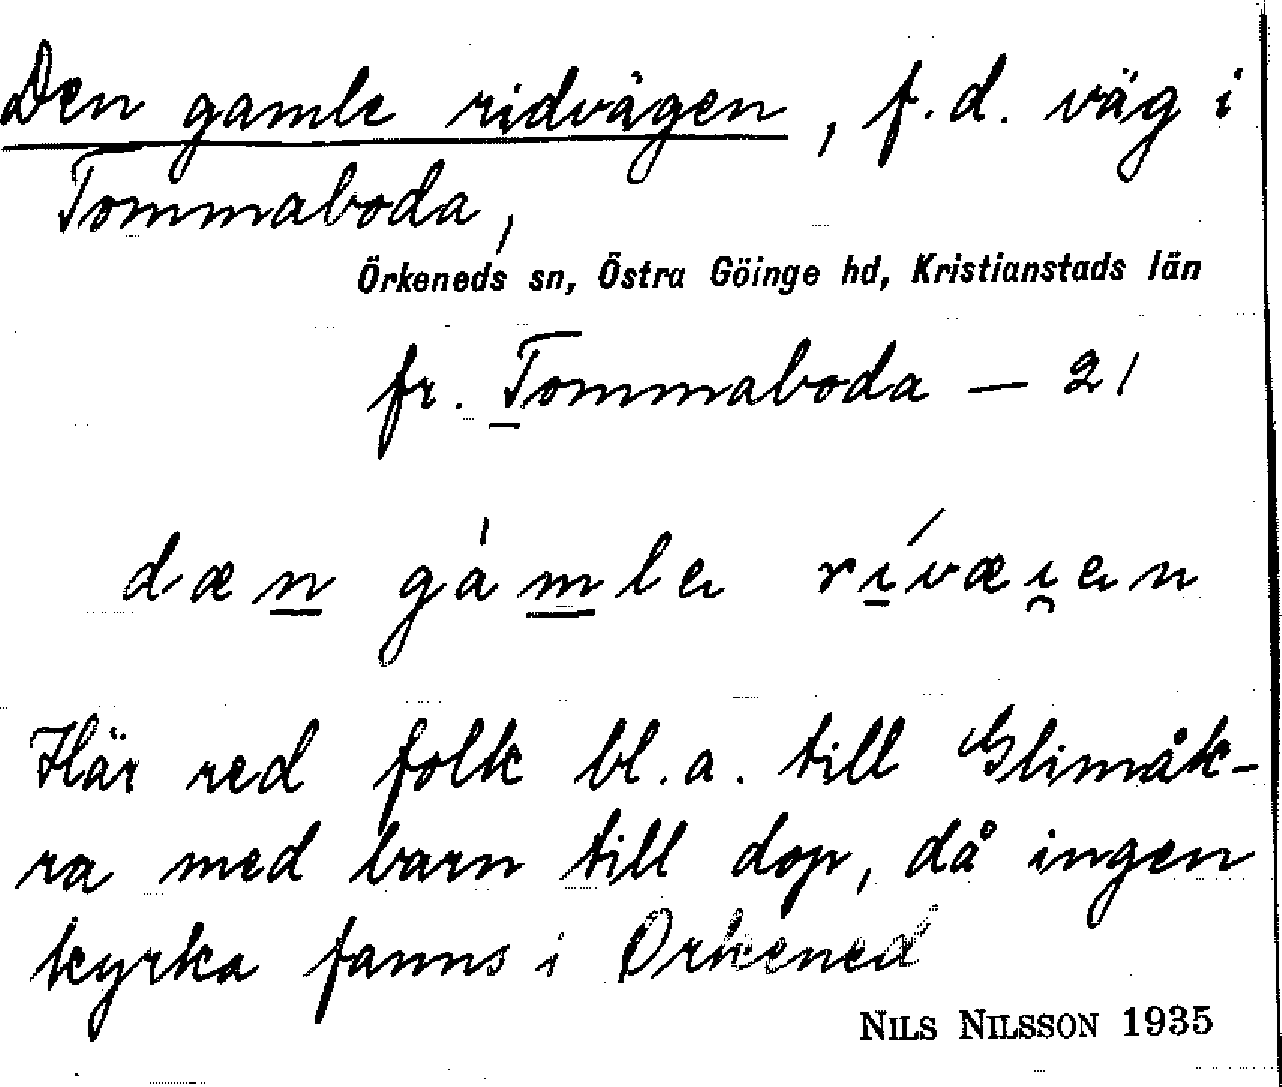 Den gamle ridvägen, f.d. väg i
Tommaboda,
Örkeneds sn, Östra Göinge hd, Kristianstads län
fr. Tommaboda — 21
dæn gàmle rívæi̯en
Här red folk bl.a. till Glimåk-
ra med barn till dop, då ingen
kyrka fanns i Örkened
NILS NILSSON 1935